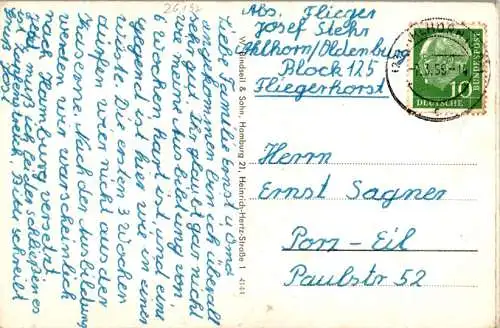 Abs. Flieger
Josef Stehr
Ahlhorn/Oldenburg
Block 125
Fliegerhorst
DEUTSCHE
BUNDESPOST
10
Herrn
Ernst Sagner
Porz-Eil
Paulstr 52
Heinrich-Hertz-Straße 1
& Sohn, Hamburg 21,
4141
Liebe Familie Ernst u
angekommen bin ich überall
sehr gut. Ihr glaubt gar nicht
wie meine Ausbildung von
6 Wochen hart ist und eine
gegend ist hier wie in einer
Wüste. Die ersten 3 Wochen
dürfen wir nicht aus der
Kaserne. Nach der Ausbildung
werden wir warscheinlich
nach Hamburg versetzt
muß ich leider schließen es
ist Zapfenstreich. Bitte schreibt
Gruß Josef